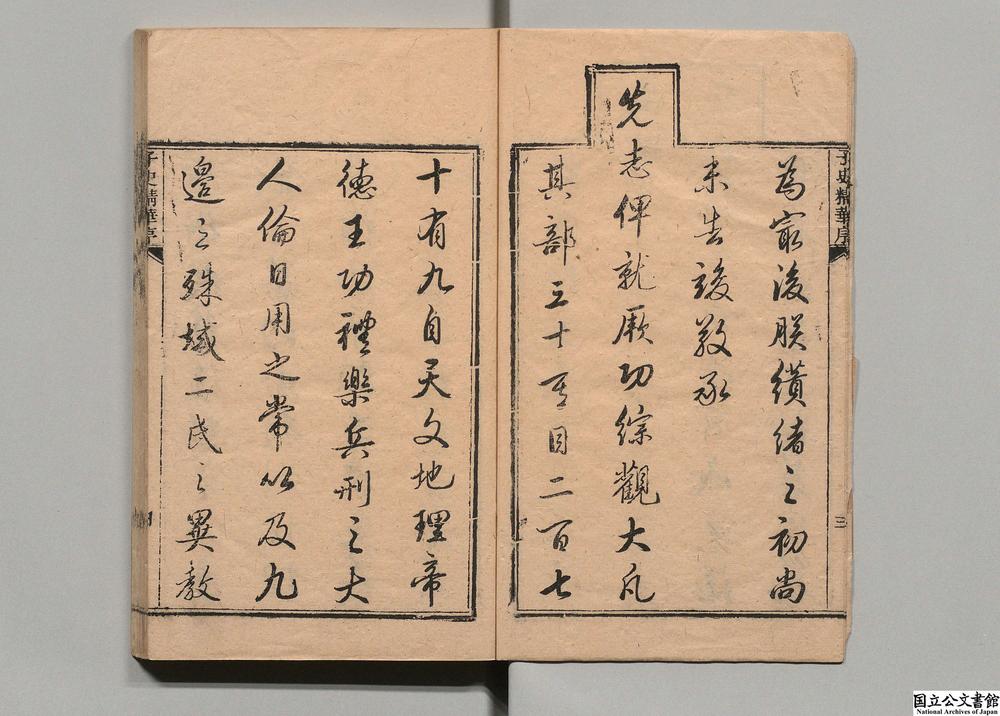 為冣後朕纘緒之初尚
未告竣敬承
先志俾就厥功綜觀大凡
其部三十有目二百七
子史精華序
三
十有九自天文地理帝
德王功禮樂兵刑之大
人倫日用之常以及九
邊之殊域二氏之異教
子史精華序
四
国立公文書館
National Archives of Japan